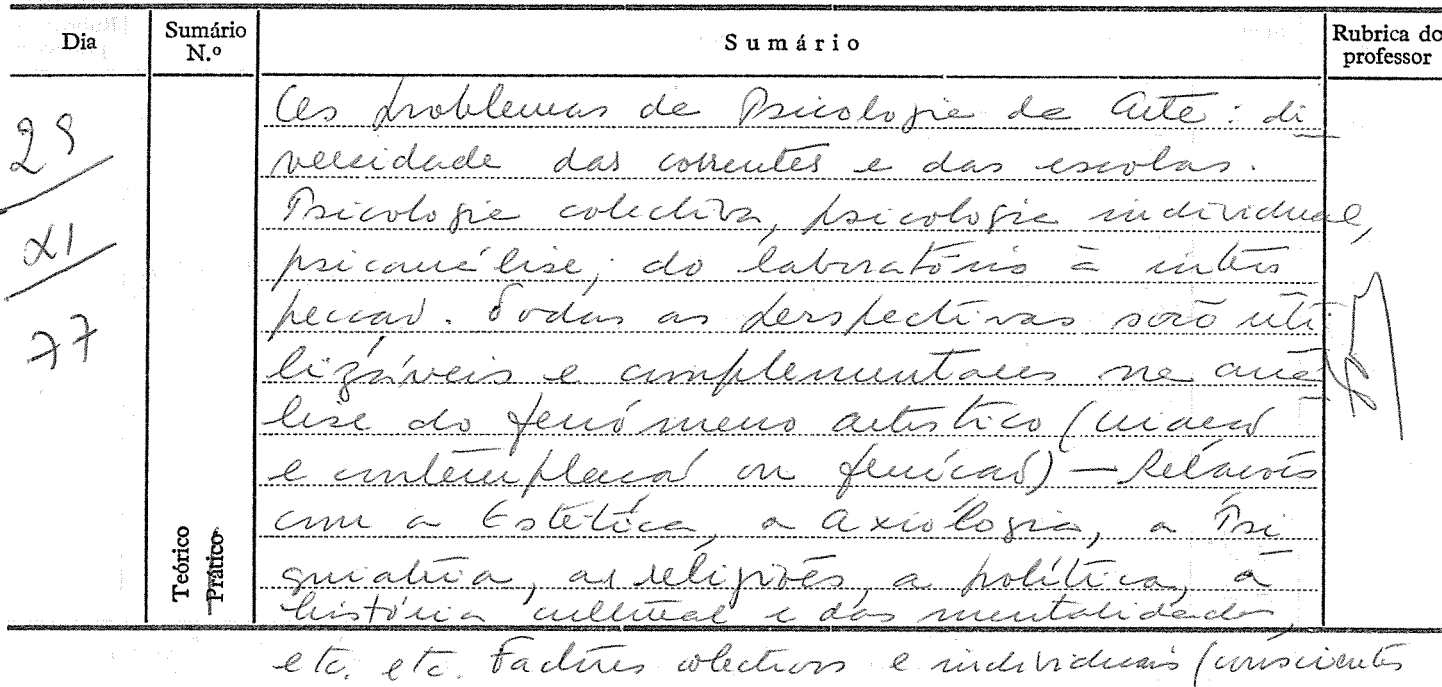 Dia
Sumário N.º
Sumário
Rubrica do professor
29
XI
77
Teórico
Prático
Os problemas de Psicologia da Arte: di
versidade das correntes e das escolas.
Psicologia colectiva, psicologia individual,
psicanálise; do laboratório à intros
pecção. Todas as perspectivas são uti
lizáveis e complementares na aná
lise do fenómeno artístico (criação
e contemplação ou fruição) — Relações
com a Estética, a Axiologia, a Psi
quiatria, as religiões, a política, a
história cultural e das mentalidades,
etc. etc. Factores colectivos e individuais (conscientes